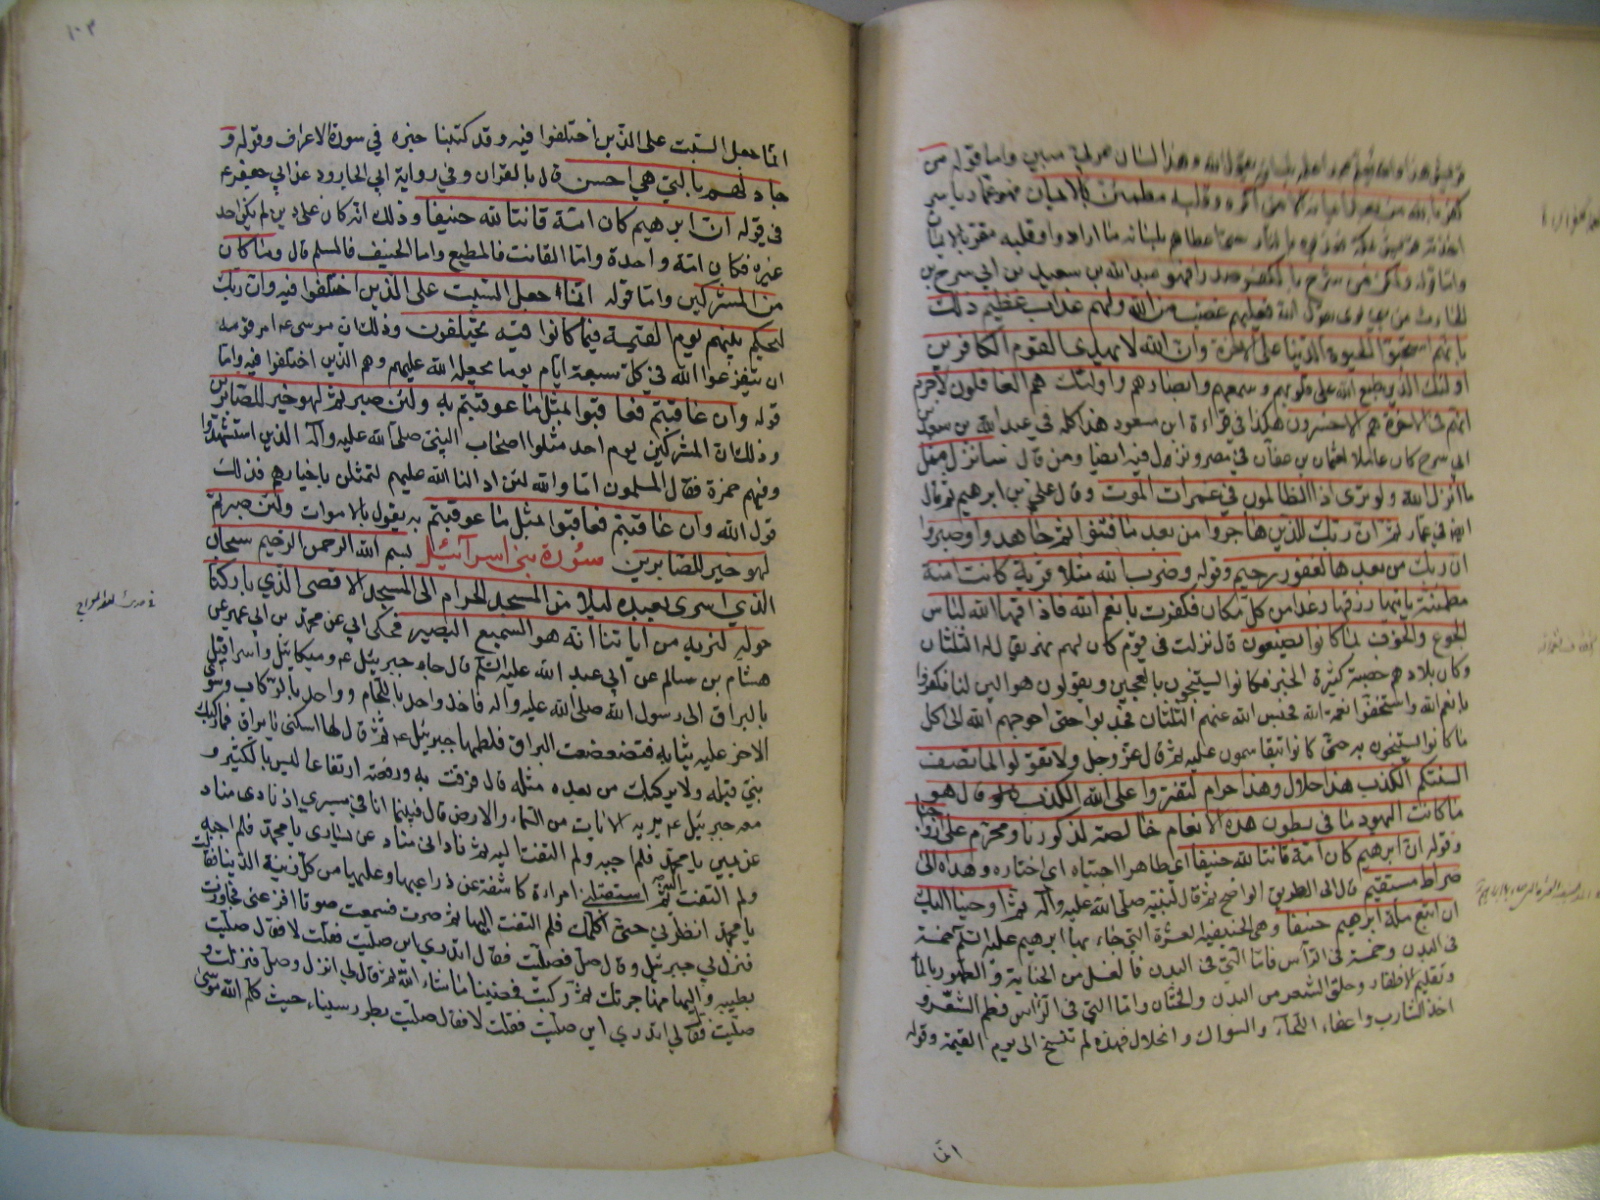 كفر بالله من بعد ايمانه الا من اكره وقلبه مطمئن بالايمان فهو عمار بن ياسر
واما قوله ولكن من شرح بالكفر صدرا فهو عبد الله بن سعد بن ابي سرح بن
فعليهم غضب من الله ولهم عذاب عظيم ذلك
بانهم استحبوا الحيوة الدنيا على الاخرة وان الله لا يهدي القوم الكافرين
اولئك الذين طبع الله على قلوبهم وسمعهم وابصارهم واولئك هم الغافلون لاجرم
انهم في الاخرة هم الاخسرون هكذا في قراءة ابن مسعود هذا كله في عبد الله بن سعد بن
ابي سرح كان عاملا لعثمان بن عفان في مصر ونزل فيه ايضا ومن قال سانزل مثل
ما انزل الله ولو ترى اذ الظالمون في غمرات الموت وقال علي بن ابرهيم ثم قال
ايضا في عمار ثم ان ربك للذين هاجروا من بعد ما فتنوا ثم جاهدوا وصبروا
ان ربك من بعدها لغفور رحيم وقوله وضرب الله مثلا قرية كانت امنة
مطمئنة ياتيها رزقها رغدا من كل مكان فكفرت بانعم الله فاذاقها الله لباس
الجوع والخوف لما كانوا يصنعون قال نزلت في قوم كان لهم نهر يقال له الثلثان
وكان بلادهم خصبة كثيرة الخير فكانوا يستنجون بالعجين ويقولون هو الين لنا فكفروا
بانعم الله واستخفوا نعمة الله فحبس الله عنهم الثلثان فجدبوا حتى احوجهم الله الى اكل
ما كانوا يستنجون به حتى كانوا يتقاسمون عليه ثم قال عز وجل ولا تقولوا لما تصف
السنتكم الكذب هذا حلال وهذا حرام لتفتروا على الله الكذب قال هو
ما كانت اليهود ما في بطون هذه الانعام خالصة لذكورنا ومحرم على ازواجنا
وقوله ان ابرهيم كان امة قانتا لله حنيفا اي طاهرا اجتباه اي اختاره وهداه الى
صراط مستقيم قال الى الطريق الواضح ثم قال لنبيه صلى الله عليه وآله ثم اوحينا اليك
ان اتبع ملة ابرهيم حنيفا وهي الحنيفية العشرة التي جاء بها ابرهيم عليه السلم خمسة
في البدن وخمسة في الرأس فاما التي في البدن فالغسل من الجنابة والطهور بالماء
وتقليم الاظفار وحلق الشعر من البدن والختان واما التي في الرأس فطم الشعر و
اخذ الشارب واعفاء اللحاء والسواك والخلال فهذه لم تنسخ الى يوم القيمة وقوله
انما
١٠٣
انما جعل السبت على الذين اختلفوا فيه وقد كتبنا خبره في سورة الاعراف وقوله و
جادلهم بالتي هي احسن قال بالقران وفي رواية ابي الجارود عن ابي جعفر ع
في قوله ان ابرهيم كان امة قانتا لله حنيفا وذلك انه كان على دين لم يكن احد
غيره فكان امة واحدة واما القانت فالمطيع واما الحنيف فالمسلم قال وما كان
من المشركين واما قوله انما جعل السبت على الذين اختلفوا فيه وان ربك
ليحكم بينهم يوم القيمة فيما كانوا فيه يختلفون وذلك ان موسى ع امر قومه
ان يتفرغوا الله في كل سبعة ايام يوما يجعله الله عليهم وهم الذين اختلفوا فيه واما
قوله وان عاقبتم فعاقبوا بمثل ما عوقبتم به ولئن صبرتم لهو خير للصابرين
وذلك ان المشركين يوم احد مثلوا اصحاب النبي صلى الله عليه وآله الذين استشهدوا
وفيهم حمزة فقال المسلمون اما والله لئن ادالنا الله عليهم لنمثلن باخيارهم فذلك
قول الله وان عاقبتم فعاقبوا بمثل ما عوقبتم به يقول بالاموات ولئن صبرتم
لهو خير للصابرين سورة بني اسرآئيل بسم الله الرحمن الرحيم سبحان
الذي اسرى بعبده ليلا من المسجد الحرام الى المسجد الاقصى الذي باركنا
حوله لنريه من اياتنا انه هو السميع البصير فحكى ابي عن محمد بن ابي عمير عن
هشام بن سالم عن ابي عبد الله عليه السلم قال جاء جبرئيل ع وميكائيل واسرافيل
بالبراق الى رسول الله صلى الله عليه وآله فاخذ واحد باللجام وواحد بالركاب وسوى
الاخر عليه ثيابه فتضعضعت البراق فلطمها جبرئيل ع ثم قال لها اسكني يا براق فما ركبك
نبي قبله ولا يركبك من بعده مثله قال فرقت به ورفعته ارتفاعا ليس بالكثير و
معه جبرئيل ع يريه الايات من السماء والارض قال فبينما انا في مسيري اذ نادى مناد
عن يميني يا محمد فلم اجبه ولم التفت اليه ثم ناداني مناد عن يساري يا محمد فلم اجبه
ولم التفت اليه ثم استقبلني امراة كاشفة عن ذراعيها وعليها من كل زينة الدنيا فقالت
يا محمد انظرني حتى اكلمك فلم التفت اليها ثم سرت فسمعت صوتا افزعني فجاوزت
فنزل بي جبرئيل وقال صل فصليت فقال اتدري اين صليت فقلت لا فقال صليت
بطيبة واليها مهاجرتك ثم ركبت فمضينا ما شاء الله ثم قال لي انزل وصل فنزلت و
صليت فقال لي اتدري اين صليت فقلت لا فقال صليت بطور سيناء حيث كلم الله موسى